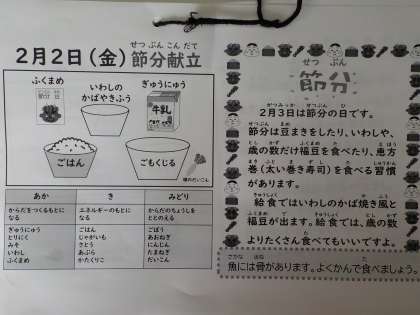 2月2日（金）節分献立
せつ ぶん こん だて
ふくまめ
節分
いわしの
かばやきふう
ぎゅうにゅう
牛乳
ごはん
ごもくじる
あか き みどり
からだをつくるもとに
なる
エネルギーのもとに
なる
からだのちょうしを
ととのえる
ぎゅうにゅう
とりにく
みそ
いわし
ふくまめ
ごはん
じゃがいも
さとう
あぶら
かたくりこ
ごぼう
あおねぎ
にんじん
たまねぎ
だいこん
せつ ぶん
節分
2月3日は節分の日です。
節分は豆まきをしたり、いわしや、
歳の数だけ福豆を食べたり、恵方
巻（太い巻き寿司）を食べる習慣
があります。
給食ではいわしのかば焼き風と
福豆が出ます。給食では、歳の数
よりたくさん食べてもいいですよ。
魚には骨があります。よくかんで食べましょう。